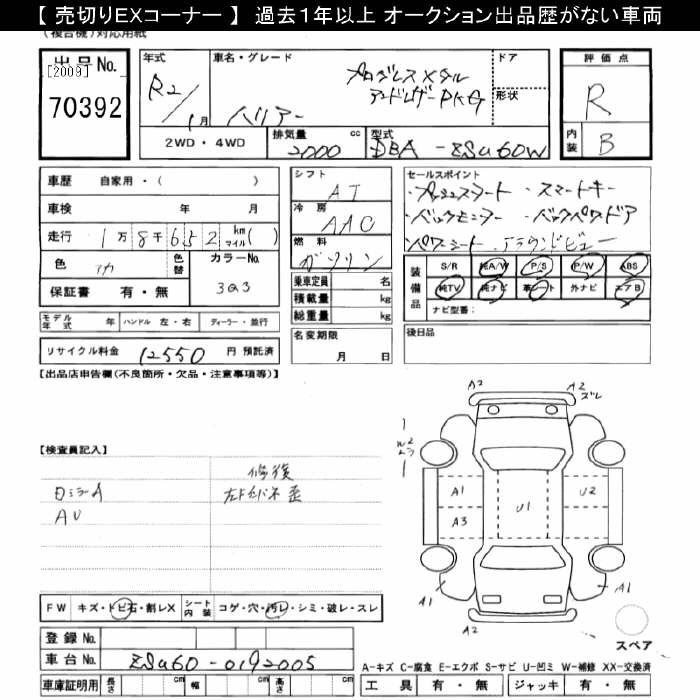 【 売切りEXコーナー 】 過去1年以上 オークション出品歴がない車両
(複合機)対応用紙
出品No.
[2009]
70392
年式
R2/1月
車名・グレード
ハリアー
プログレス メタル
アンドレザーPKG
ドア
形状
評価点
R
内装
B
2WD・4WD
排気量
2000
cc
型式
DBA-ZSU60W
車歴 自家用・( )
車検 年 月
走行 1万8千652 km マイル( )
色
色替
カラーNo.
3Q3
保証書 有・無
シフト
AT
冷房
AAC
燃料
ガソリン
乗車定員 名
積載量 kg
総重量 kg
セールスポイント
・プッシュスタート ・スマートキー
・バックモニター ・バックパワードア
・パワーシート ・アラウンドビュー
装備品
S/R 純A/W P/S P/W ABS
純TV 純ナビ 革シート 外ナビ エアB
ナビ型番:
モデル年式 年 ハンドル 左・右 ディーラー・並行
リサイクル料金 12550 円 預託済
名変期限
月 日
後日品
【出品店申告欄(不良箇所・欠品・注意事項等)】
【検査員記入】
修復
ロミラーA
AU
A2
A2
ズレ
A1
A3
U1
U2
A1
A1
A2
スペア
FW キズ・トビ石・割レX シート内装 コゲ・穴・汚レ・シミ・破レ・スレ
登録No.
車台No. ZSU60-0192005
車庫証明用 長さ cm 幅 cm 高さ cm
A-キズ C-腐食 E-エクボ S-サビ U-凹ミ W-補修 XX-交換済
工具 有・無 ジャッキ 有・無